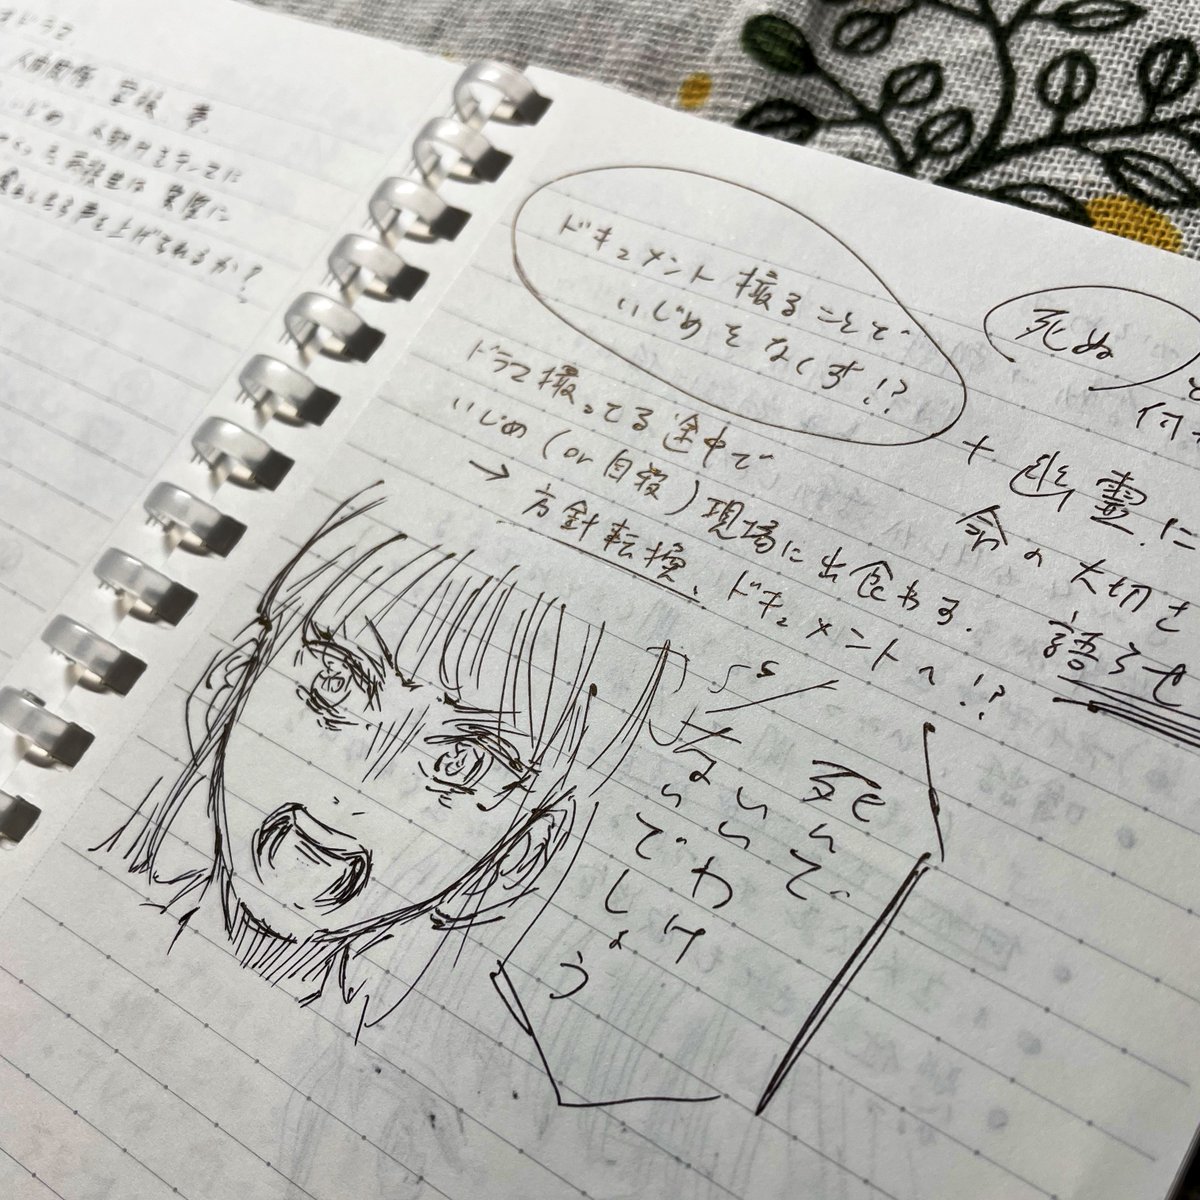 人間関係、学校、夢
いじめ、
声を上げられるか？
ドキュメント撮ることで
いじめをなくす!?
ドラマ撮ってる途中で
いじめ(or自殺)現場に出食わす.
→方針転換、ドキュメントへ!?
死ぬ
+幽霊に
命の大切さ
語らせ
死んで、
いいわけ
ないでしょう